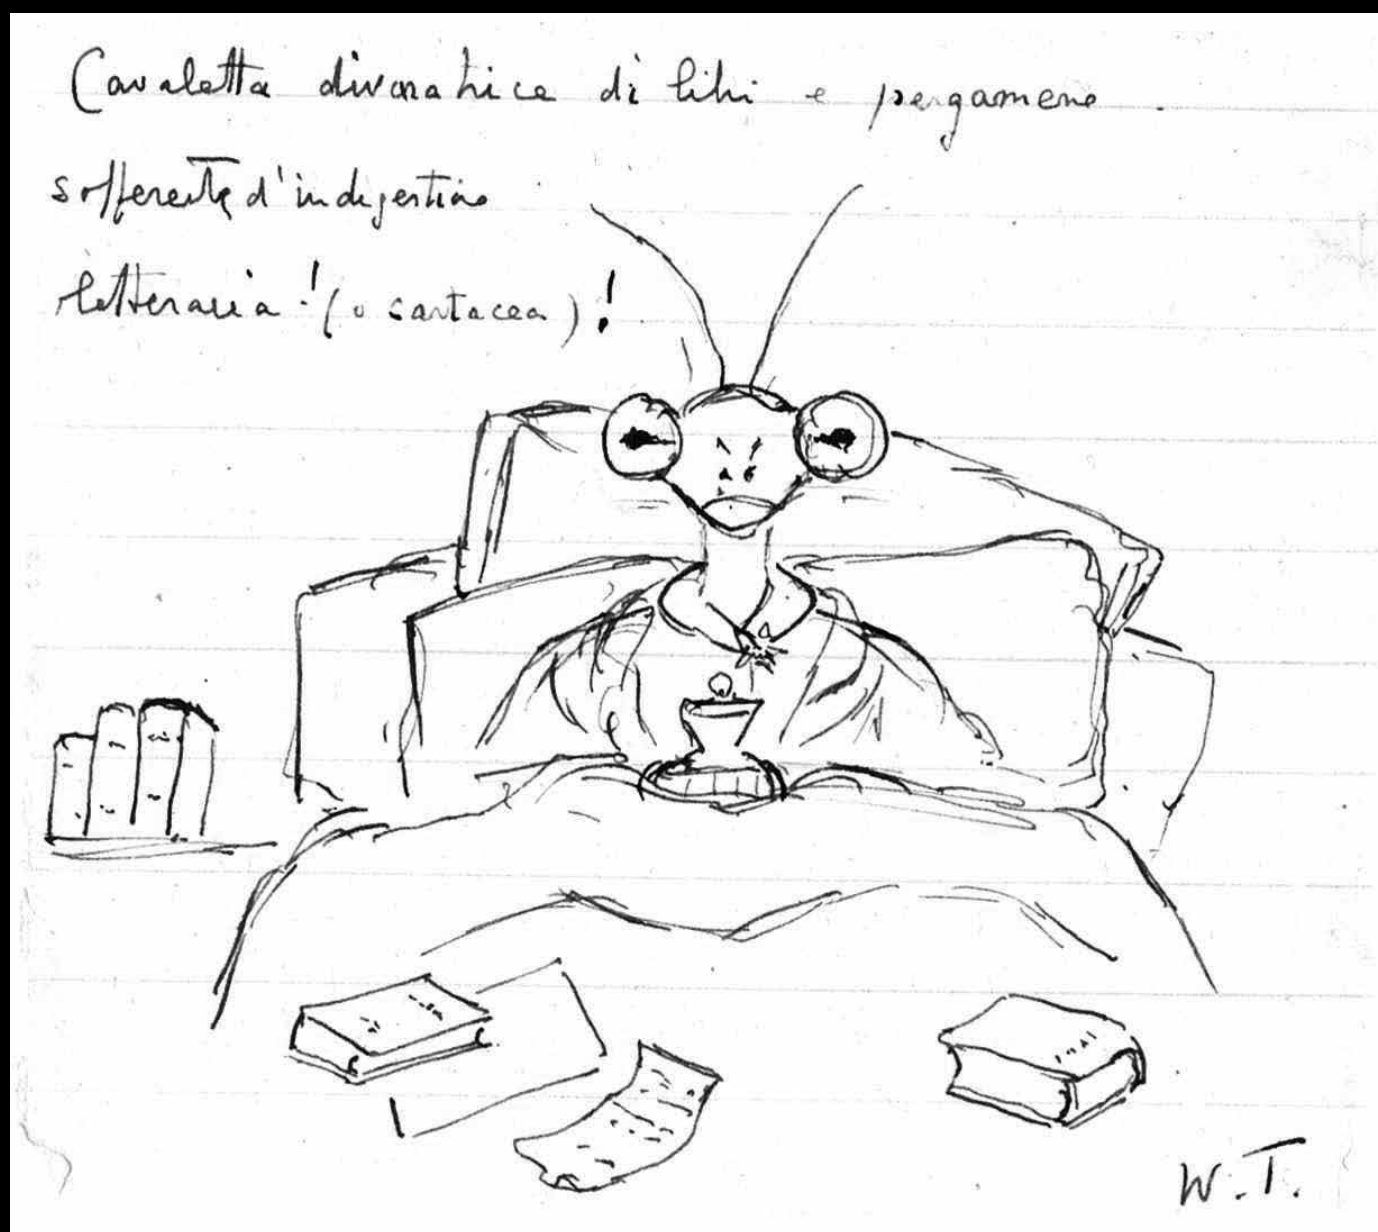 Cavaletta divoratrice di libri e pergamene
sofferente d'indigestione
letteraria! (o cartacea)!
W.T.